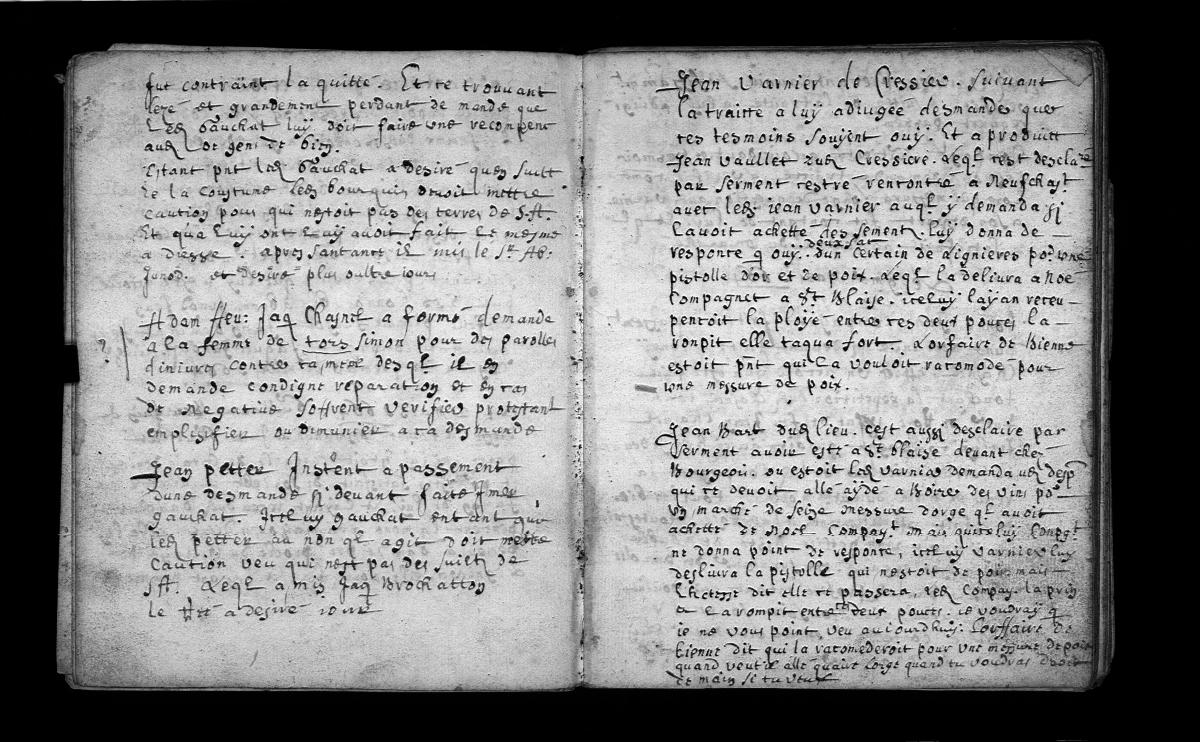 fut contraint la quitté. Et ce trouvant
lezé et grandement perdant demande que
Led. Gauchat luy doit faire une recompent
aued. de gens de bien.
Estant pnt led. Gauchat a desiré quen suitt
de la coustume led. bourquin devoit mettre
caution pour qui nestoit pas des terres de S. A.
Et qua luy ont luy avoit fait le mesme
a diesse. apres santance il mis le Sr. Ab:
Junod. et desire plus oultre iour
Adam ffeu: Jaq Chasnel a formé demande
a la femme de tors simon pour des parolles
diniures contre sa mere desql. il en
demande condigne reparation et en cas
de negative soffrent verifier protestant
emplifier ou diminuer a ca desmande
Jean petter Instent a passement
dune desmande si devant faite Imer
gauchat. Icelluy gauchat entant que
led. petter au non ql agit doit mettre
caution veu qui nest pas des suiets de
SA. Leql a mis Jaq Brochatton
le a desiré iour
Jean Varnier de Cressier. Suivant
la traitte a luy adiugée desmande que
ces tesmoins soyent ouy. Et a produict
Jean Vaullet Cressier. Leql. cest desclare
par serment cestre rencontré a Neufchast
avec led. iean Varnier auql. y demanda si
lavoit achetté des sement. luy donna de
responce q ouy. deux sat dun certain de Lignieres po. une
pistolle dor et de poix. Leql la delivra a noe
Compagnet a St. Blaise. iceluy layan receu
pensoit la ployé entre ces deux pouces la
ronpit elle taqua fort. Lorfaire de Bienne
estoit pnt qui la vouloit racomodé pour
une messure de poix.
Jean Bart dud. lieu. cest aussi desclaire par
serment avoir esté a St. blaise devant chez
Bourgeois. ou estoit led. Varnier demanda
qui ce devoit allé aydé a Boire des vins po.
un marché de seize messure dorge ql avoit
achetté de Noel Compayt. mais quiceluy Conpgt.
ne donna point de responce, iceluy Varnier luy
deslivra la pistolle qui nestoit de poix mais
dit elle ce passera, led. Compay. la prin
et la rompit entre ces deux pouces. ie voudray q
ie ne vous point veu auiourdhuy. Lorffaire de
bienne dit qui la racomederoit pour une messure de poix
quand veut il allé quaire Lorge quand tu voudras
demain si tu veux